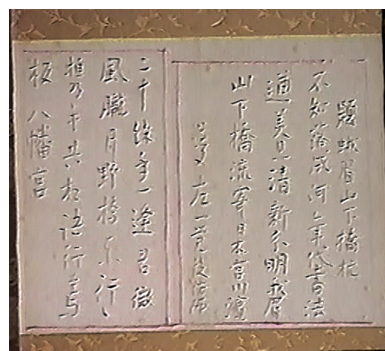 題蛾眉山下橋杭
不知落成何年代書法
遒美且清新分明我眉
山下橋流寄日本宮川濱
二十餘年一逢君微
風朧月野橋東行々
携手共相語行至與
板八幡宮